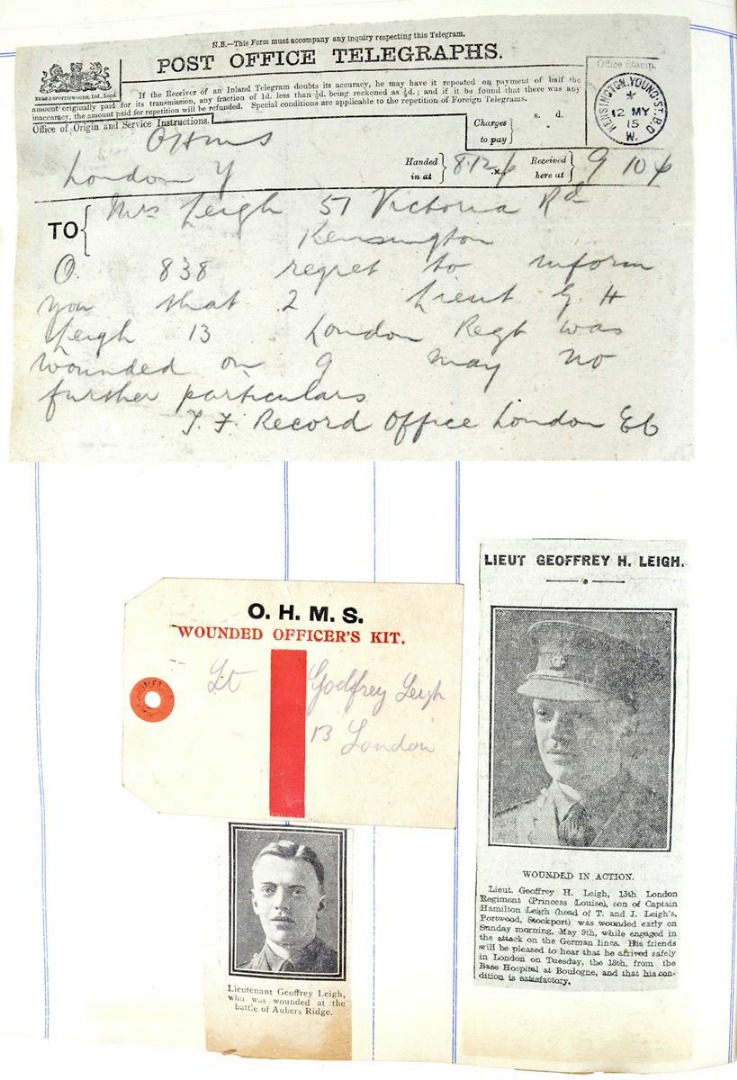 N.B.—This Form must accompany any inquiry respecting this Telegram.
POST OFFICE TELEGRAPHS.
If the Receiver of an Inland Telegram doubts its accuracy, he may have it repeated on payment of half the
amount originally paid for its transmission, any fraction of 1d. less than ½d. being reckoned as ½d.; and if it be found that there was any
inaccuracy, the amount paid for repetition will be refunded. Special conditions are applicable to the repetition of Foreign Telegrams.
Office Stamp.
KENSINGTON. YOUNG ST. B.O
12 MY
15
W.
Office of Origin and Service Instructions.
OHMS
London Y
Charges to pay
s. d.
Handed in at 8.12 p
Received here at 9 10 p
TO
Mrs Leigh 57 Victoria Rd
Kensington
O. 838 regret to inform
you that 2 Lieut G H
Leigh 13 London Regt was
wounded on 9 May no
further particulars
T. F. Record Office London EC
O. H. M. S.
WOUNDED OFFICER'S KIT.
Lt Godfrey Leigh
13 London
Lieutenant Geoffrey Leigh,
who was wounded at the
battle of Aubers Ridge.
LIEUT GEOFFREY H. LEIGH.
WOUNDED IN ACTION.
Lieut. Geoffrey H. Leigh, 13th London
Regiment (Princess Louise), son of Captain
Hamilton Leigh (head of T. and J. Leigh's,
Portwood, Stockport) was wounded early on
Sunday morning, May 9th, while engaged in
the attack on the German lines. His friends
will be pleased to hear that he arrived safely
in London on Tuesday, the 18th, from the
Base Hospital at Boulogne, and that his con-
dition is satisfactory.